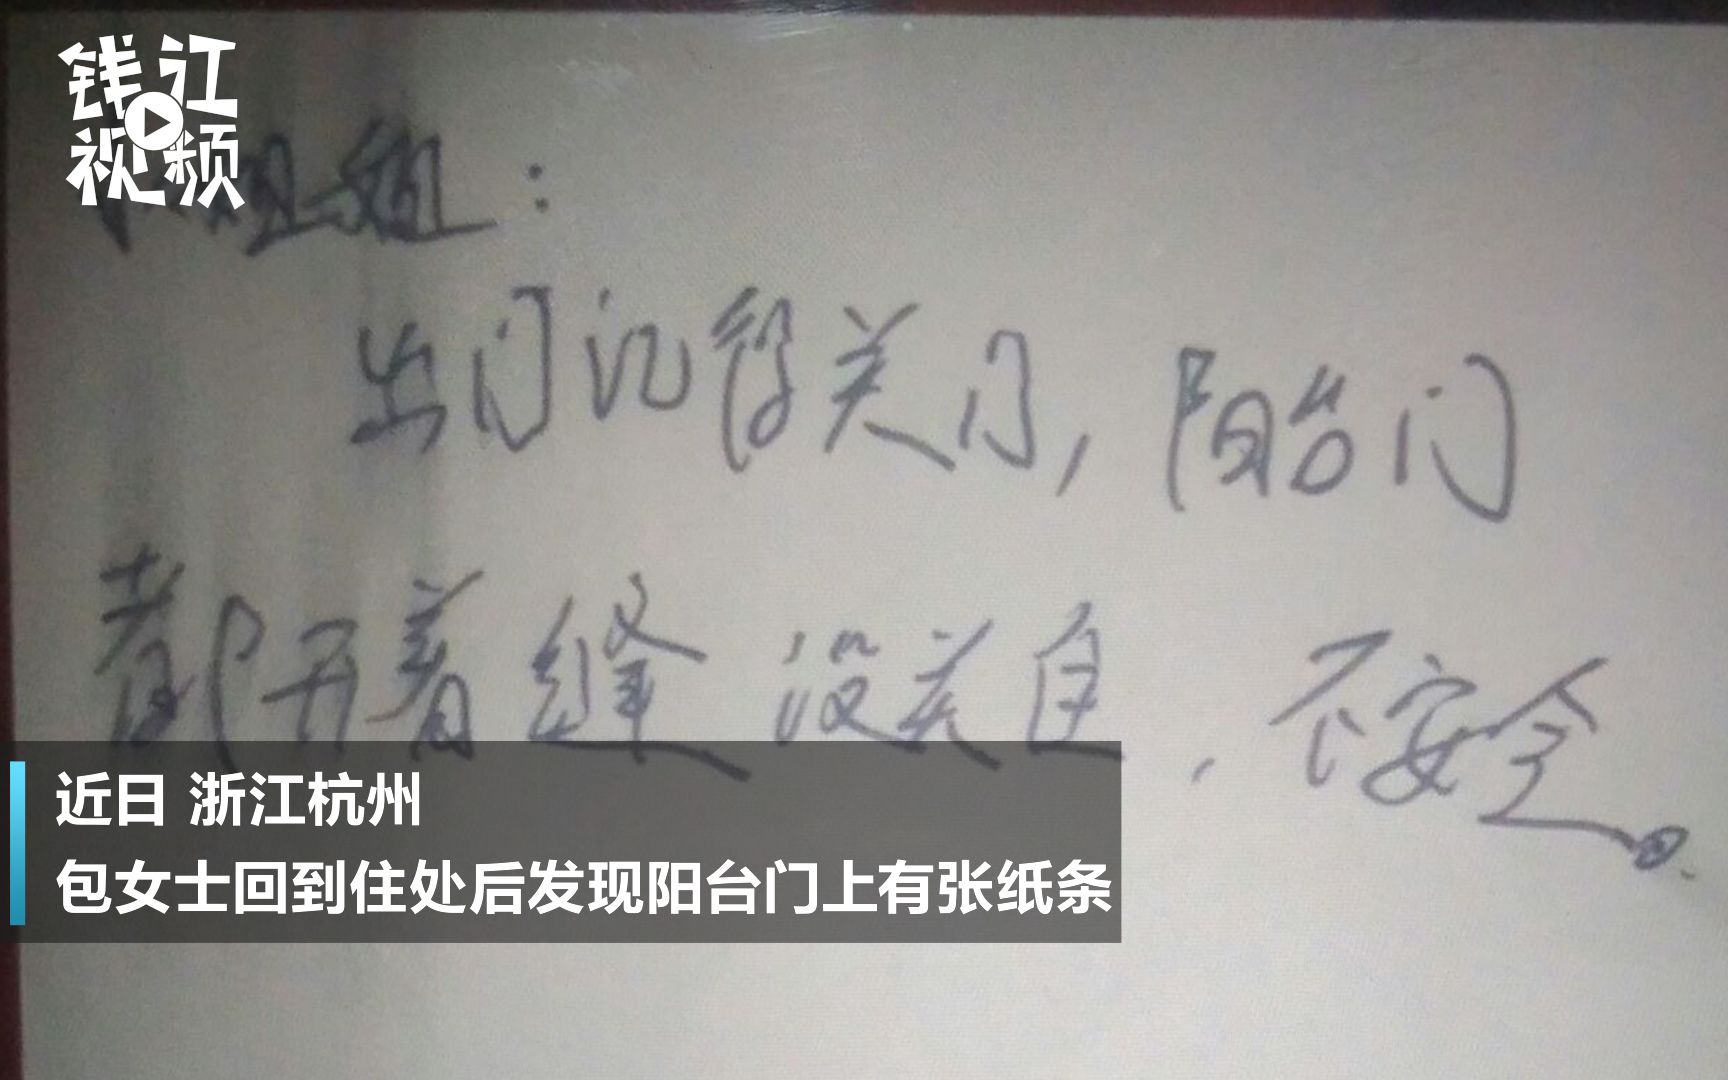 钱江
视频
姐姐：
出门记得关门，阳台门
都开着缝没关自，不安全。
近日 浙江杭州
包女士回到住处后发现阳台门上有张纸条